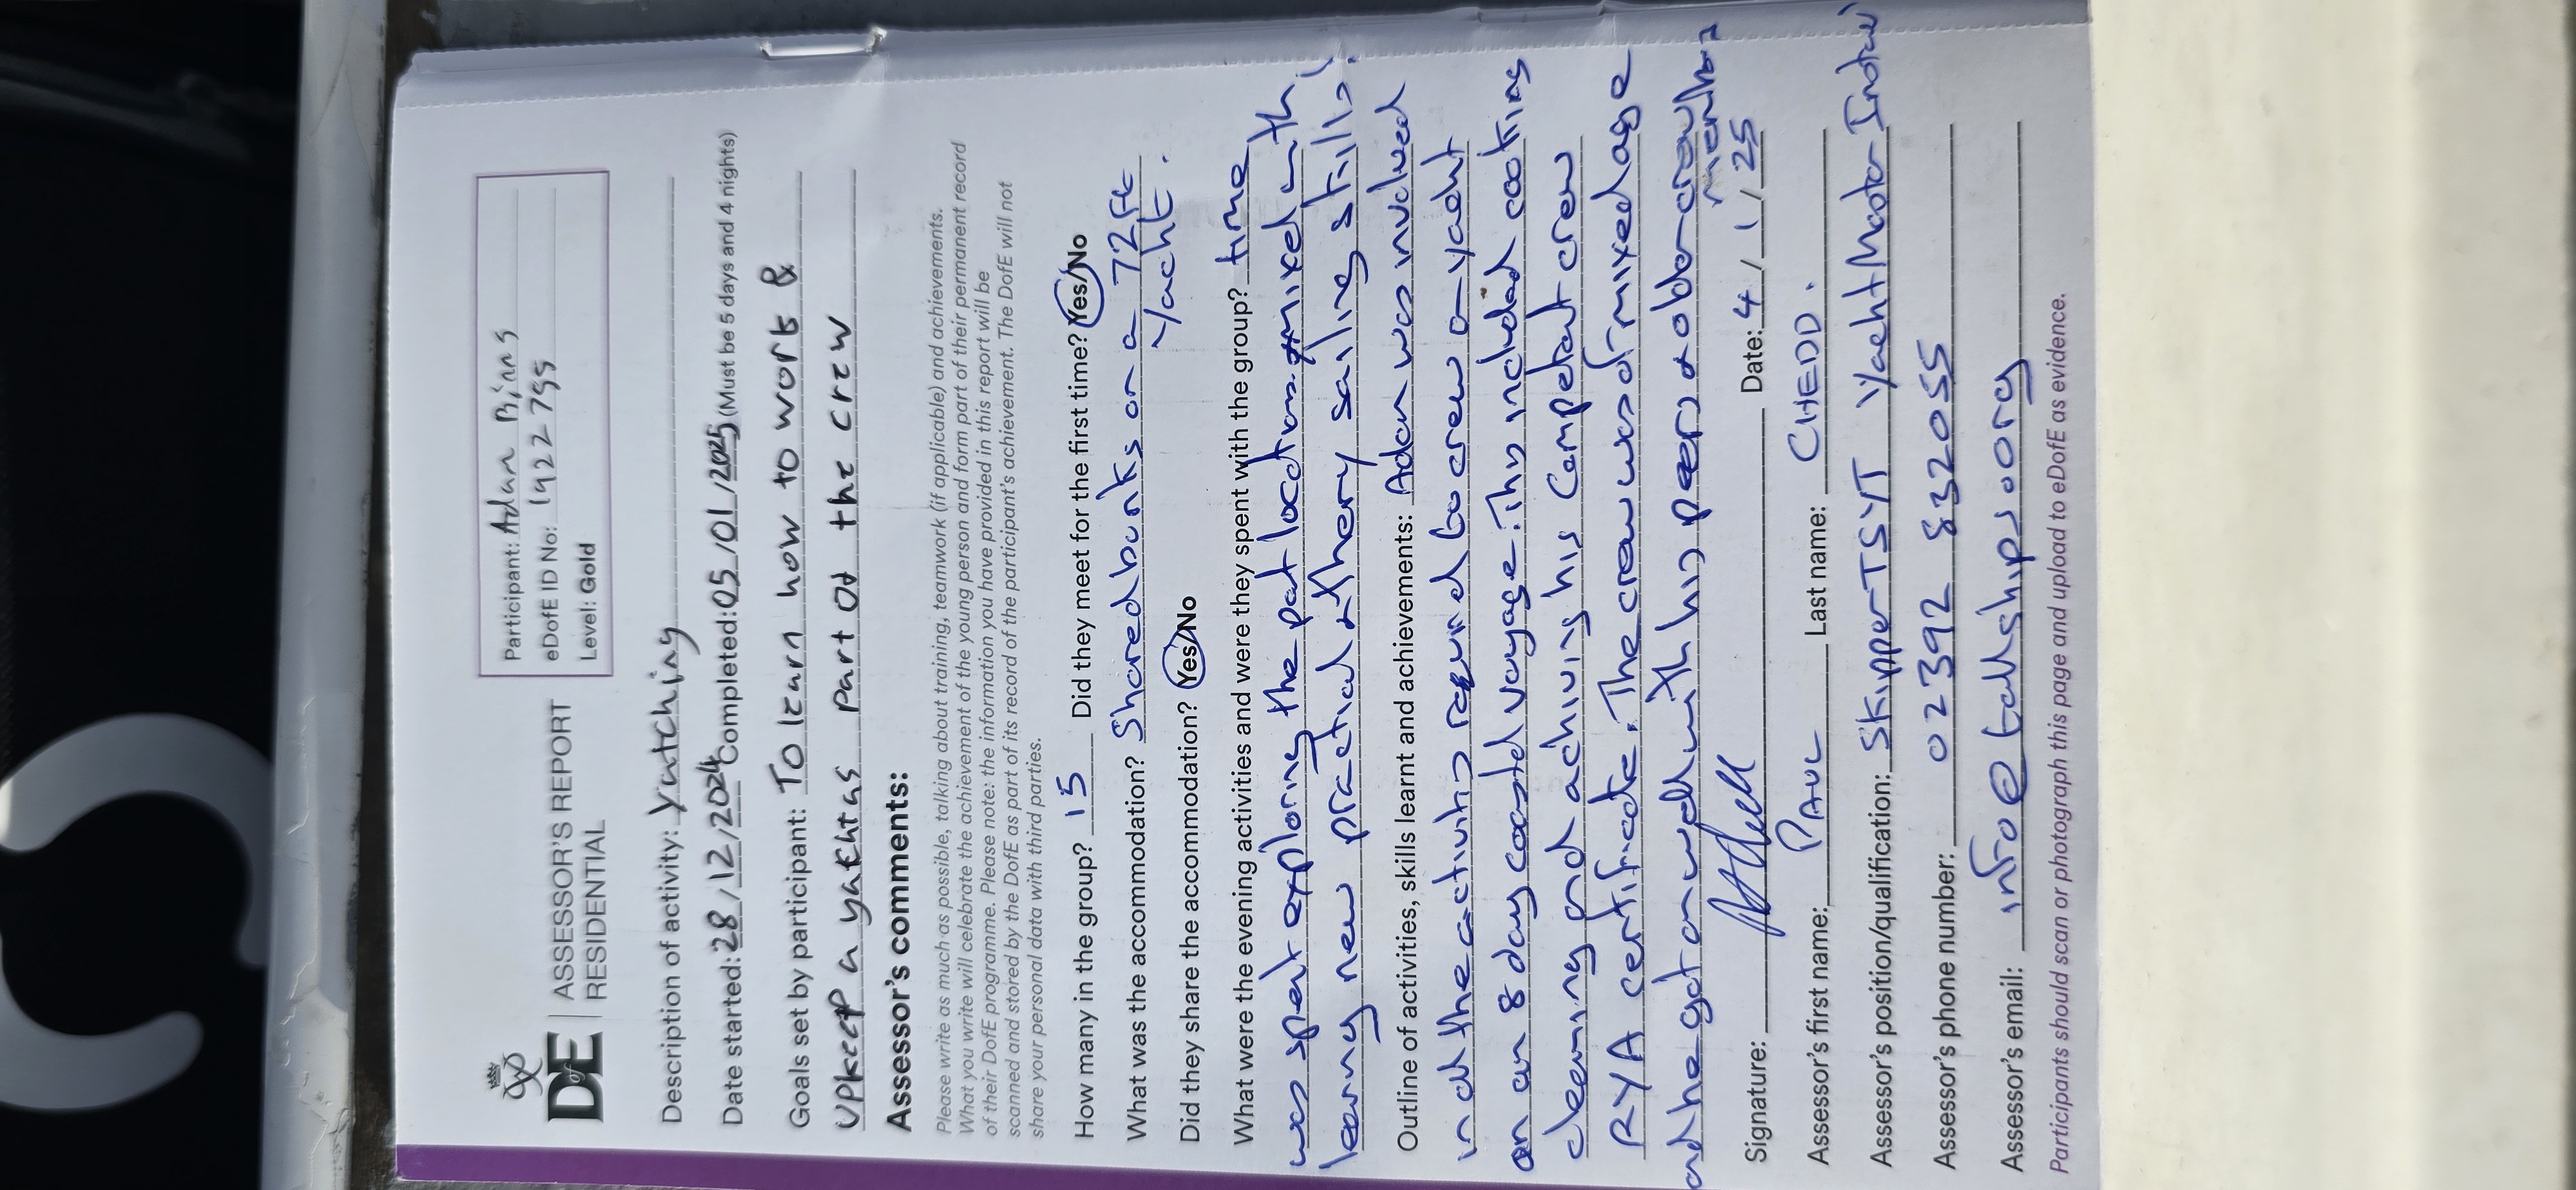 DofE
ASSESSOR'S REPORT
RESIDENTIAL
Participant: Adan Binns
eDofE ID No: 1922795
Level: Gold
Description of activity: Yatching
Date started: 28/12/2024 Completed: 05/01/2025 (Must be 5 days and 4 nights)
Goals set by participant: To learn how to work &
upkeep a yatkht as part of the crew
Assessor's comments:
Please write as much as possible, talking about training, teamwork (if applicable) and achievements.
What you write will celebrate the achievement of the young person and form part of their permanent record
of their DofE programme. Please note: the information you have provided in this report will be
scanned and stored by the DofE as part of its record of the participant's achievement. The DofE will not
share your personal data with third parties.
How many in the group? 15 Did they meet for the first time? Yes/No
What was the accommodation? Shared bunks on a 72ft
Yacht.
Did they share the accommodation? Yes/No
What were the evening activities and were they spent with the group? time
was spent exploring the port locations mixed with
learning new practical & theory sailing skills.
Outline of activities, skills learnt and achievements: Adan was involved
in all the activities required to crew a yacht
on an 8 day coastal voyage. This included cooking
cleaning and achiving his Competent crew
RYA certificate. The crew was of mixed age
and he got on well with his peers & older crew
members
Signature: Date: 4/1/25
Assessor's first name: PAUL Last name: CHEDD.
Assessor's position/qualification: Skipper TSYT Yacht Master Instru
Assessor's phone number: 02392 832055
Assessor's email: info@tallships.org
Participants should scan or photograph this page and upload to eDofE as evidence.